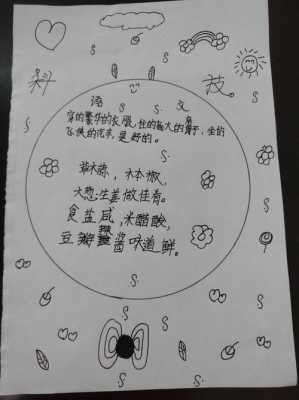 科 技
语 文
穿的繁华的衣服,住的极大的房子,坐的
飞快的汽车,是舒的。
草木麻,木本椒,
大葱生姜做佳肴。
食盐咸,米醋酸,
豆瓣辣酱味道鲜。